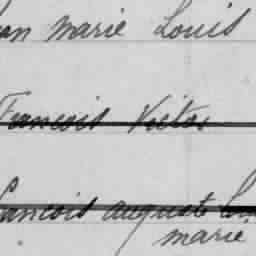 Jean marie Louis
Francois Victor
francois auguste
marie